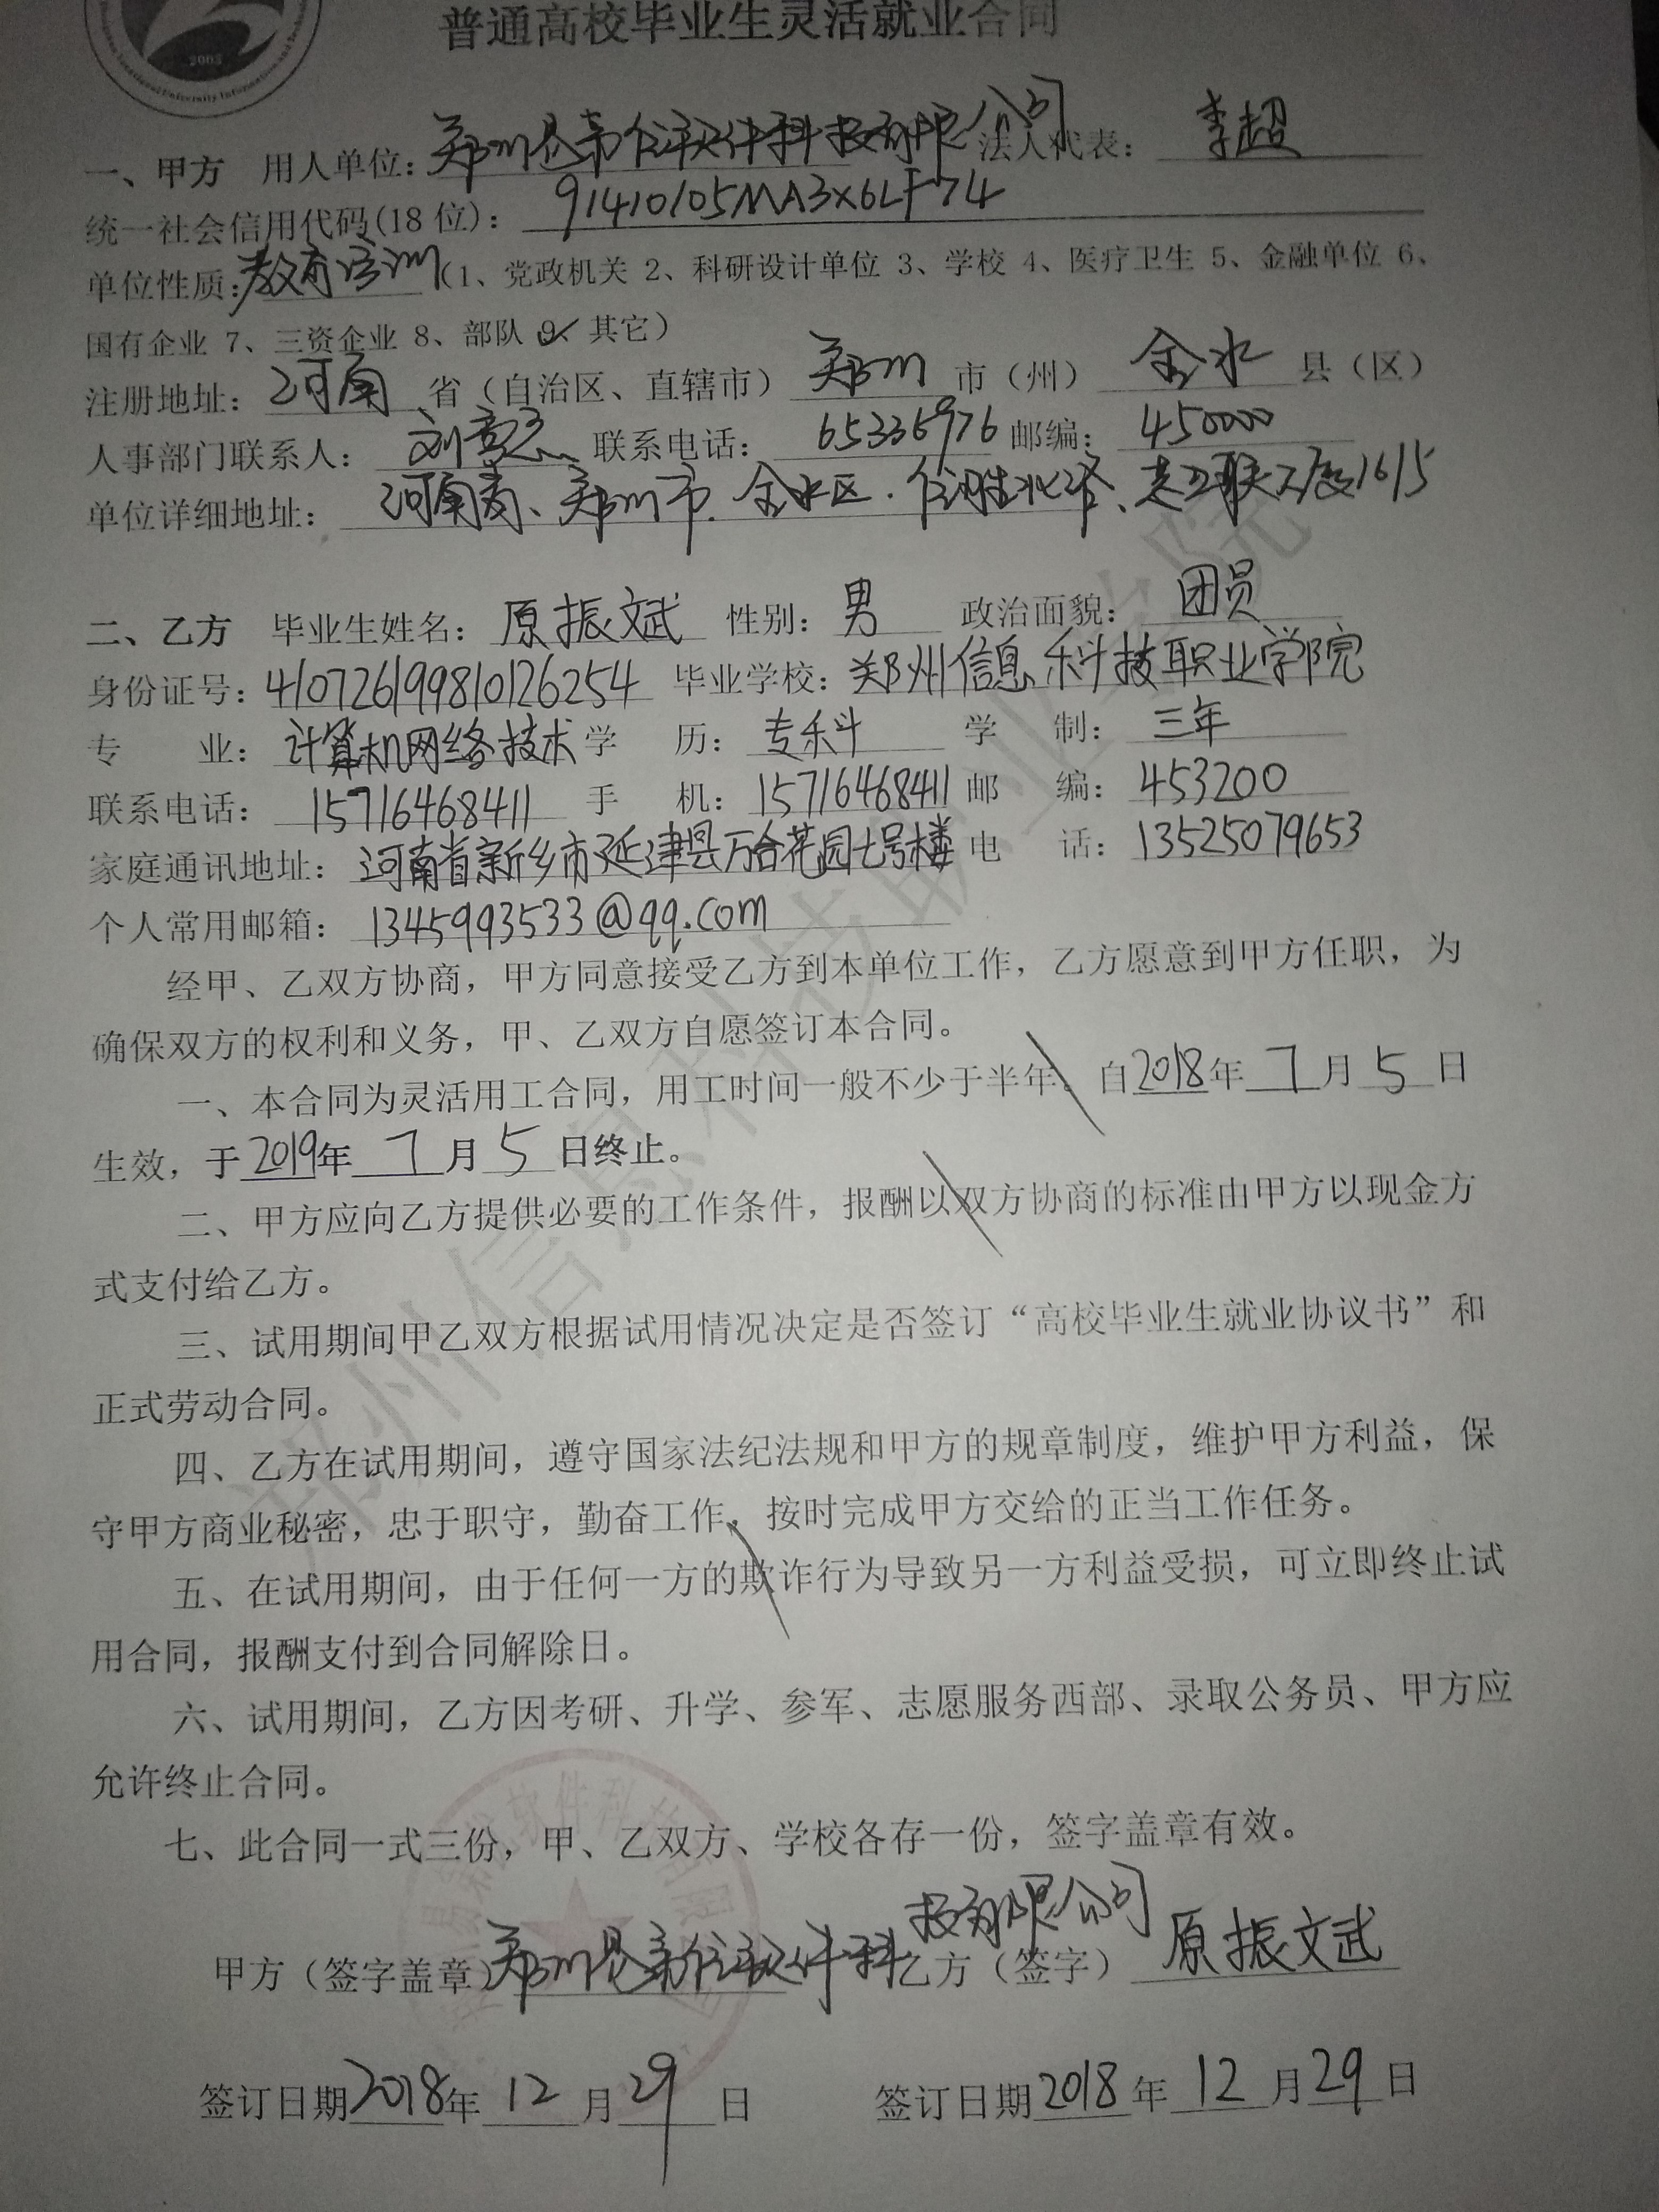 2005
普通高校毕业生灵活就业合同
一、甲方 用人单位：郑州 软件科技有限公司 法人代表：李超
统一社会信用代码(18位)：91410105MA3X6LF74
单位性质：教育培训（1、党政机关 2、科研设计单位 3、学校 4、医疗卫生 5、金融单位 6、
国有企业 7、三资企业 8、部队 9、其它）
注册地址：河南 省（自治区、直辖市）郑州 市（州）金水 县（区）
人事部门联系人：刘 联系电话：65336976 邮编：450000
单位详细地址：河南省、郑州市、金水区、 1615
二、乙方 毕业生姓名：原振斌 性别：男 政治面貌：团员
身份证号：410726199810126254 毕业学校：郑州信息科技职业学院
专 业：计算机网络技术 学 历：专科 学 制：三年
联系电话：15716468411 手 机：15716468411 邮 编：453200
家庭通讯地址：河南省新乡市延津县万合花园七号楼 电 话：13525079653
个人常用邮箱：1345993533@qq.com
经甲、乙双方协商，甲方同意接受乙方到本单位工作，乙方愿意到甲方任职，为
确保双方的权利和义务，甲、乙双方自愿签订本合同。
一、本合同为灵活用工合同，用工时间一般不少于半年。自2018年7月5日
生效，于2019年7月5日终止。
二、甲方应向乙方提供必要的工作条件，报酬以双方协商的标准由甲方以现金方
式支付给乙方。
三、试用期间甲乙双方根据试用情况决定是否签订“高校毕业生就业协议书”和
正式劳动合同。
四、乙方在试用期间，遵守国家法纪法规和甲方的规章制度，维护甲方利益，保
守甲方商业秘密，忠于职守，勤奋工作，按时完成甲方交给的正当工作任务。
五、在试用期间，由于任何一方的欺诈行为导致另一方利益受损，可立即终止试
用合同，报酬支付到合同解除日。
六、试用期间，乙方因考研、升学、参军、志愿服务西部、录取公务员、甲方应
允许终止合同。
七、此合同一式三份，甲、乙双方、学校各存一份，签字盖章有效。
甲方（签字盖章）郑州 软件科技有限公司 乙方（签字）原振斌
签订日期2018年12月29日 签订日期2018年12月29日
郑州信息科技职业学院